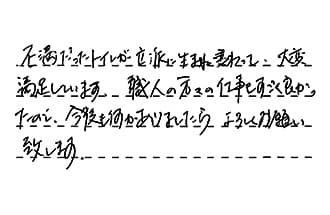 不満だったトイレが立派に生まれ変わって、大変
満足しています。職人の方々の仕事もすごく良かっ
たので、今後も何かありましたらよろしくお願い
致します。